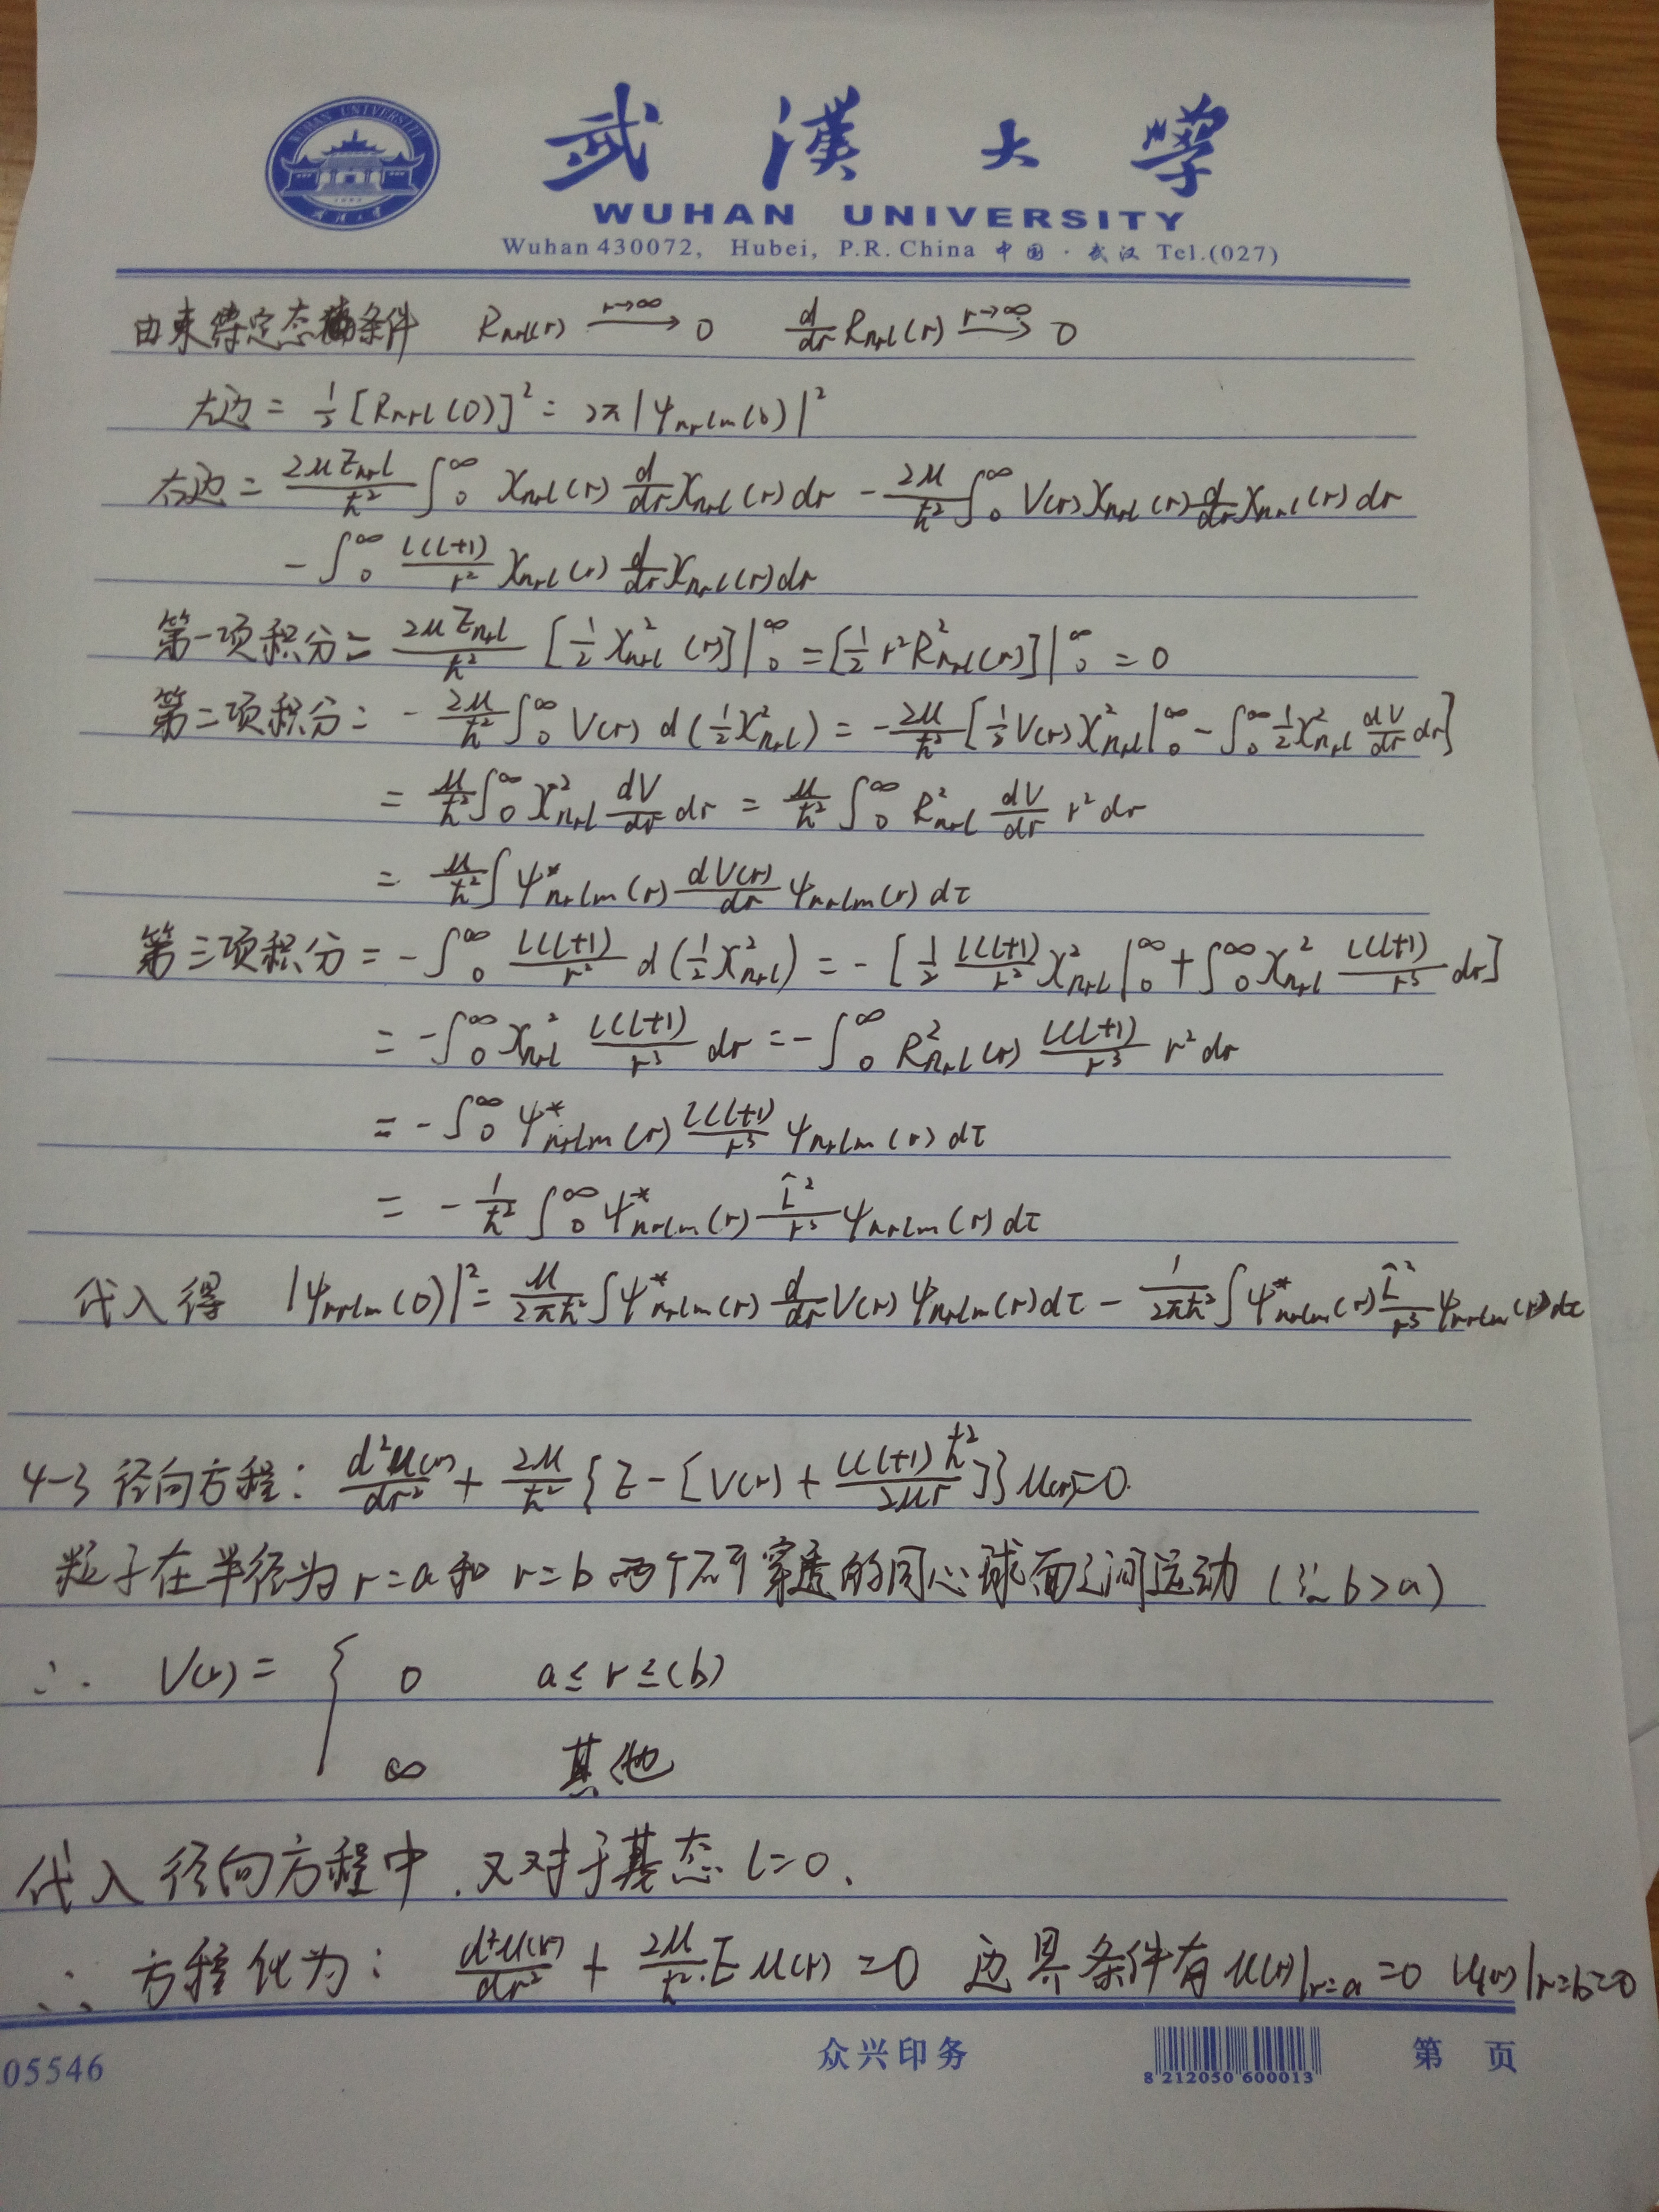 武漢大學
WUHAN UNIVERSITY
Wuhan 430072, Hubei, P.R. China 中国·武汉 Tel.(027)
由束缚定态条件 R_{n_r l}(r) \xrightarrow{r→∞} 0 \frac{d}{dr}R_{n_r l}(r) \xrightarrow{r→∞} 0
左边 = \frac{1}{2}[R_{n_r l}(0)]^2 = 2π|ψ_{n_r l m}(0)|^2
右边 = \frac{2μE_{n_r l}}{ħ^2}∫_0^∞ χ_{n_r l}(r)\frac{d}{dr}χ_{n_r l}(r)dr - \frac{2μ}{ħ^2}∫_0^∞ V(r)χ_{n_r l}(r)\frac{d}{dr}χ_{n_r l}(r)dr
- ∫_0^∞ \frac{l(l+1)}{r^2}χ_{n_r l}(r)\frac{d}{dr}χ_{n_r l}(r)dr
第一项积分 = \frac{2μE_{n_r l}}{ħ^2}[\frac{1}{2}χ_{n_r l}^2(r)]|_0^∞ = [\frac{1}{2}r^2R_{n_r l}^2(r)]|_0^∞ = 0
第二项积分 = -\frac{2μ}{ħ^2}∫_0^∞ V(r)d(\frac{1}{2}χ_{n_r l}^2) = -\frac{2μ}{ħ^2}[\frac{1}{2}V(r)χ_{n_r l}^2|_0^∞ - ∫_0^∞\frac{1}{2}χ_{n_r l}^2\frac{dV}{dr}dr]
= \frac{μ}{ħ^2}∫_0^∞ χ_{n_r l}^2\frac{dV}{dr}dr = \frac{μ}{ħ^2}∫_0^∞ R_{n_r l}^2\frac{dV}{dr}r^2dr
= \frac{μ}{ħ^2}∫ψ^*_{n_r l m}(r)\frac{dV(r)}{dr}ψ_{n_r l m}(r)dτ
第三项积分 = -∫_0^∞\frac{l(l+1)}{r^2}d(\frac{1}{2}χ_{n_r l}^2) = -[\frac{1}{2}\frac{l(l+1)}{r^2}χ_{n_r l}^2|_0^∞ + ∫_0^∞χ_{n_r l}^2\frac{l(l+1)}{r^3}dr]
= -∫_0^∞χ_{n_r l}^2\frac{l(l+1)}{r^3}dr = -∫_0^∞R_{n_r l}^2(r)\frac{l(l+1)}{r^3}r^2dr
= -∫_0^∞ψ^*_{n_r l m}(r)\frac{l(l+1)}{r^3}ψ_{n_r l m}(r)dτ
= -\frac{1}{ħ^2}∫_0^∞ψ^*_{n_r l m}(r)\frac{\hat{L}^2}{r^3}ψ_{n_r l m}(r)dτ
代入得 |ψ_{n_r l m}(0)|^2 = \frac{μ}{2πħ^2}∫ψ^*_{n_r l m}(r)\frac{d}{dr}V(r)ψ_{n_r l m}(r)dτ - \frac{1}{2πħ^2}∫ψ^*_{n_r l m}(r)\frac{\hat{L}^2}{r^3}ψ_{n_r l m}(r)dτ
4-3 径向方程: \frac{d^2u(r)}{dr^2} + \frac{2μ}{ħ^2}{E-[V(r)+\frac{l(l+1)ħ^2}{2μr}]}u(r)=0.
粒子在半径为r=a和r=b两个不可穿透的同心球面之间运动(设b>a)
∴ V(r) = { 0 a≤r≤(b)
∞ 其他
代入径向方程中,又对于基态l=0.
∴ 方程化为: \frac{d^2u(r)}{dr^2} + \frac{2μ}{ħ^2}Eu(r)=0 边界条件有u(r)|_{r=a}=0 u(r)|_{r=b}=0
05546 众兴印务 8 212050 600013 第 页